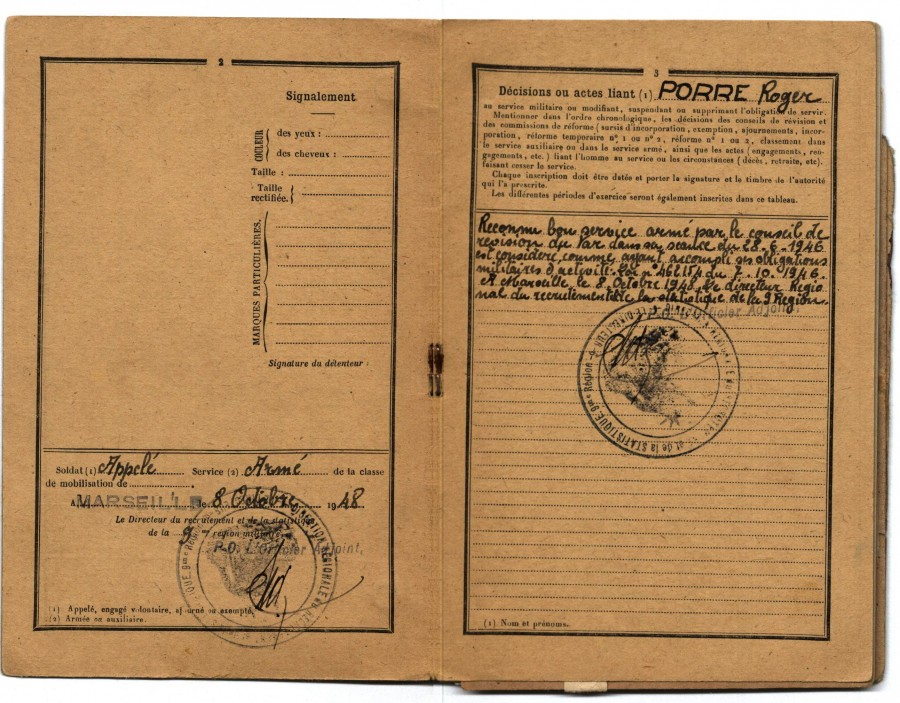 2
Signalement
COULEUR
des yeux :
des cheveux :
Taille :
Taille
rectifiée.
MARQUES PARTICULIÈRES.
Signature du détenteur :
Soldat (1) Appelé Service (2) Armé de la classe
de mobilisation de
A MARSEILLE le 8 Octobre 1948
Le Directeur du recrutement et de la statistique
de la 9e région militaire
P.O. L'Officier Adjoint,
(1) Appelé, engagé volontaire, ajourné ou exempté.
(2) Armée ou auxiliaire.
3
Décisions ou actes liant (1) PORRE Roger
au service militaire ou modifiant, suspendant ou supprimant l'obligation de servir.
Mentionner dans l'ordre chronologique, les décisions des conseils de révision et
des commissions de réforme (sursis d'incorporation, exemption, ajournements, incor-
poration, réforme temporaire n° 1 ou n° 2, réforme n° 1 ou 2, classement dans
le service auxiliaire ou dans le service armé, ainsi que les actes (engagements, ren-
gagements, etc.) liant l'homme au service ou les circonstances (décès, retraite, etc).
faisant cesser le service.
Chaque inscription doit être datée et porter la signature et le timbre de l'autorité
qui l'a prescrite.
Les différentes périodes d'exercice seront également inscrites dans ce tableau.
Reconnu bon service armé par le conseil de
révision du Var dans sa séance du 28.6.1946
est considéré comme ayant accompli ses obligations
militaires d'activité. Loi n° 462154 du 7.10.1946.
A Marseille, le 8 Octobre 1948, Le directeur Regio
nal du recrutement et de la statistique de la 9 Région.
P.O. L'Officier Adjoint,
et de la STATISTIQUE 9me Région
(1) Nom et prénoms.